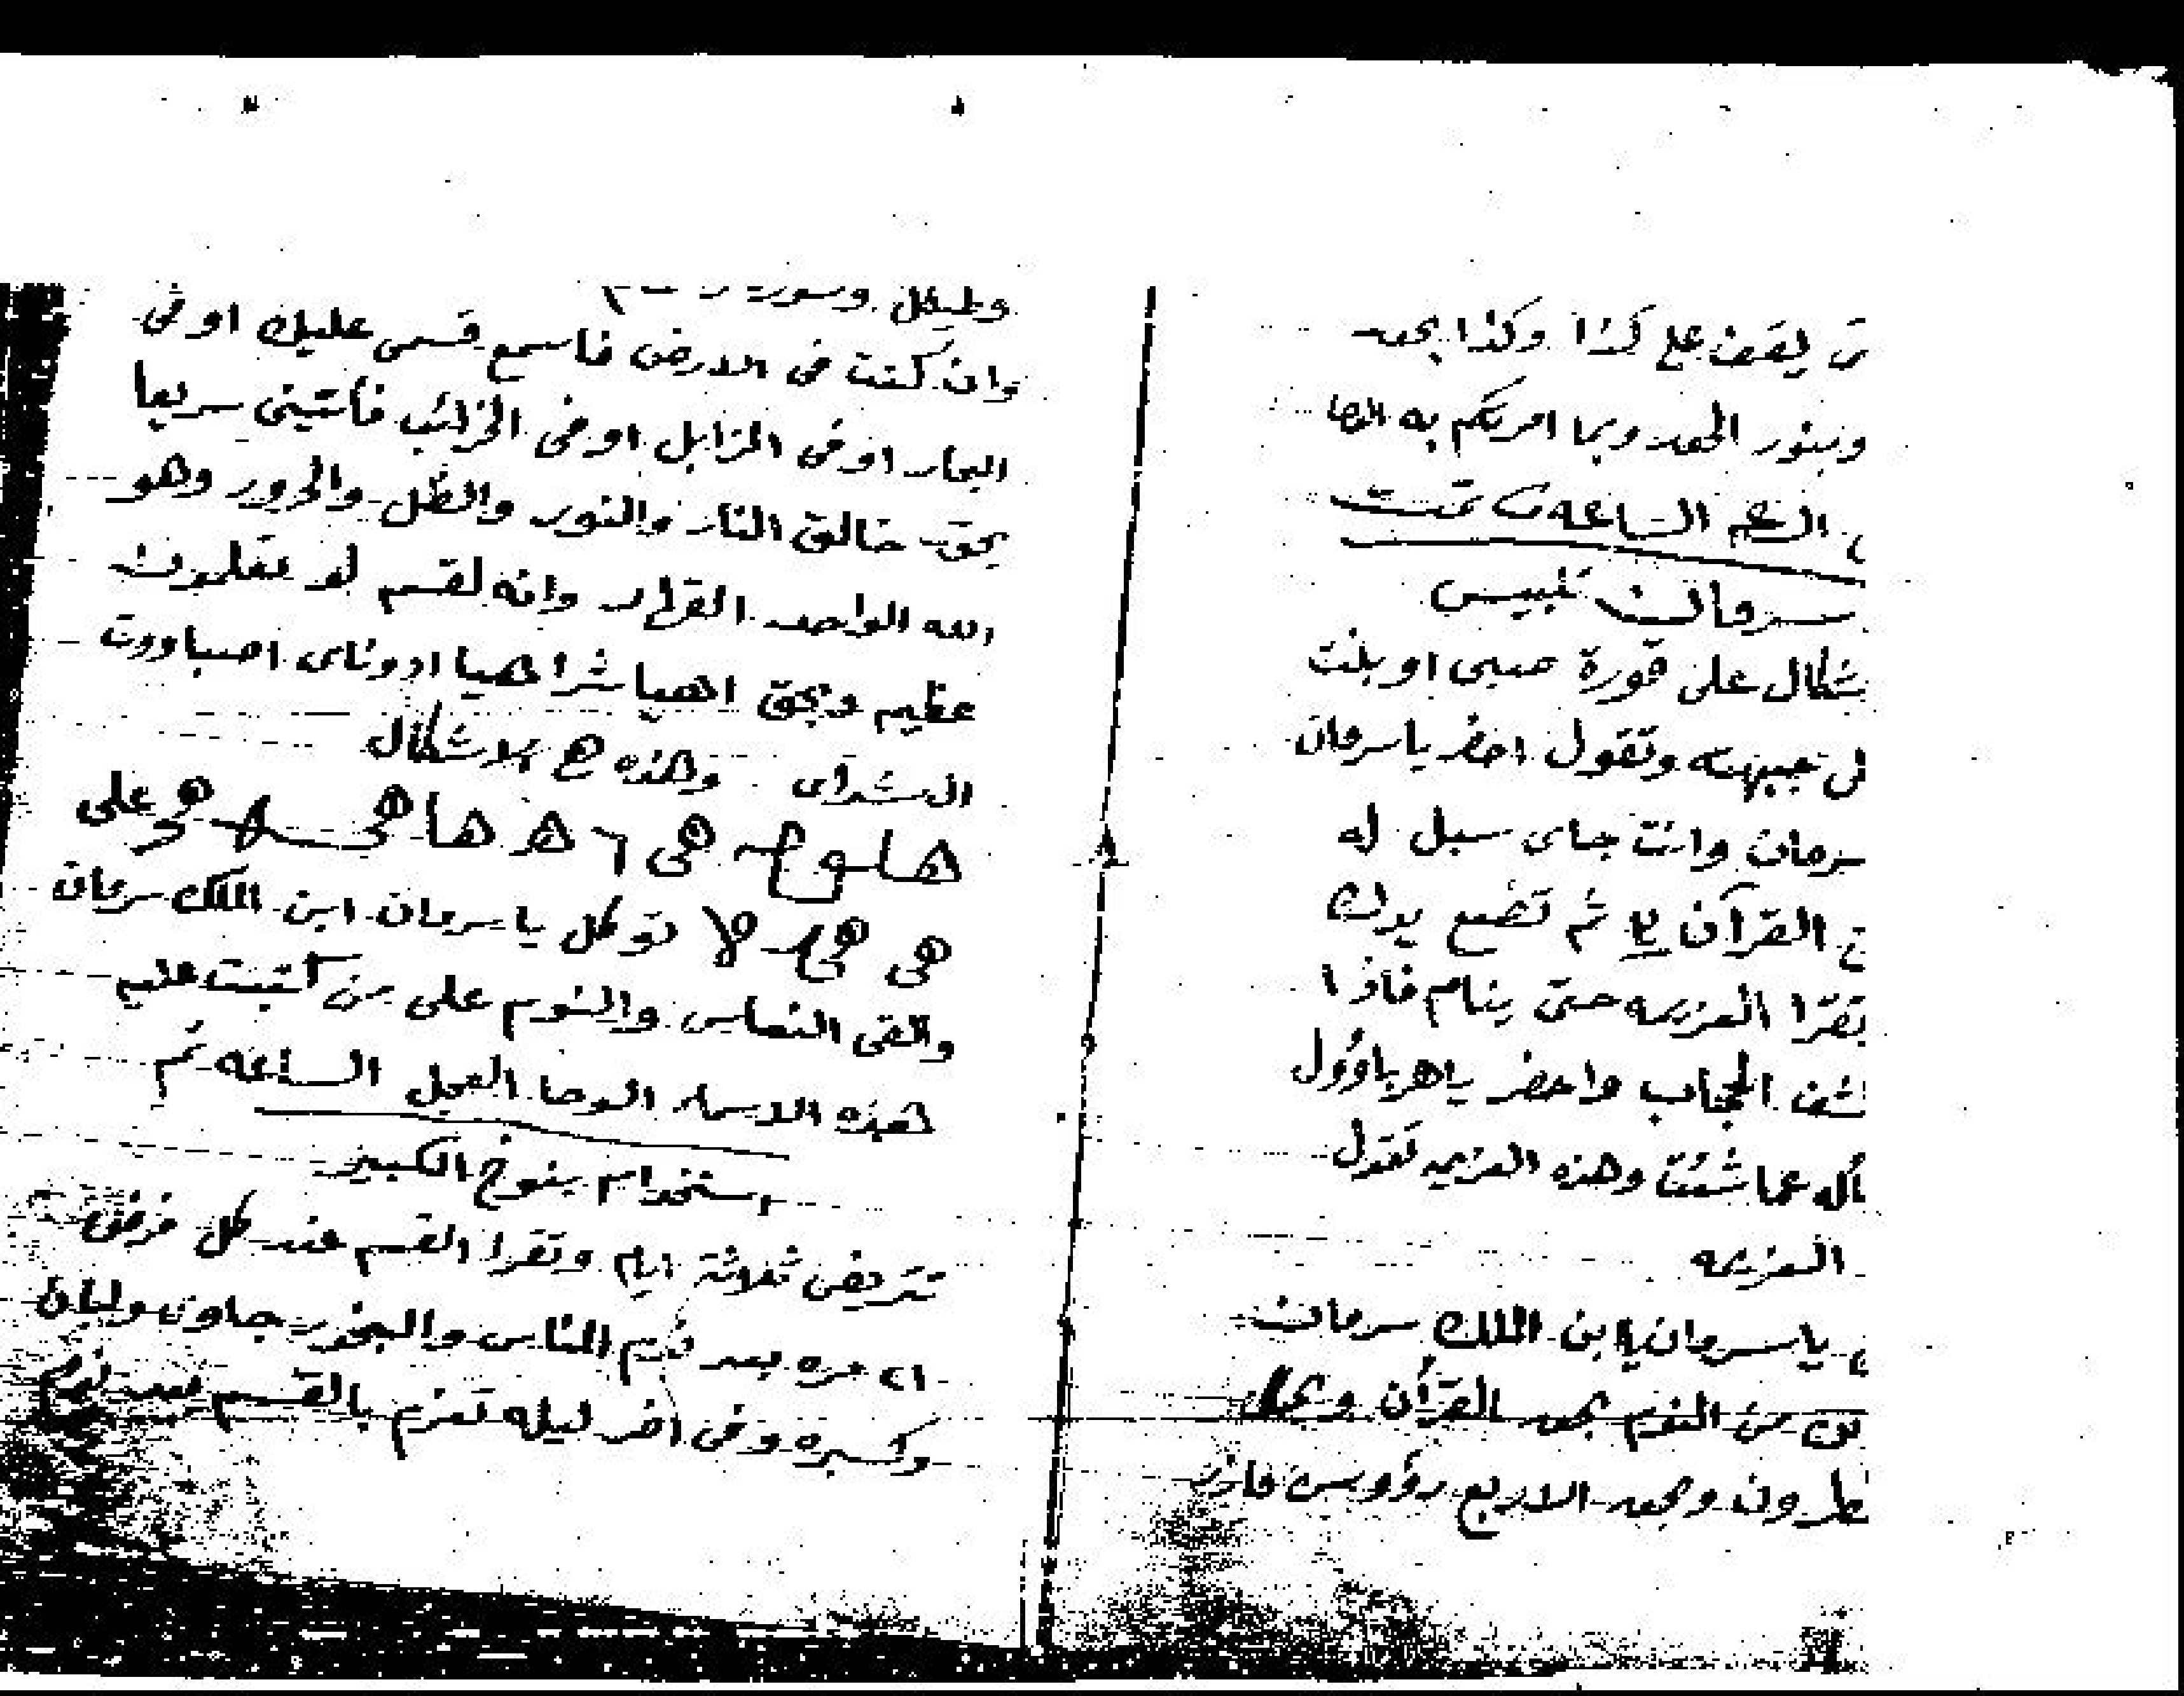 يقف على كذا وكذا بحق
وبنور الحمد وبما امرتكم به الوحا
الساعه تمت
سرمان تلبيس
شكال على قورة صبى او بنت
لى جبهته وتقول احضر يا سرمان
سرمان وانت جاى سبل له
القرآن ثم تضع يدك
تقرا العزيمه حتى ينام فاذا
شف الحجاب واحضر ياهرياوول
أله عما شئت وهذه العزيمه تقول
العزيمه
يا سرمان يا ابن الملك سرمان
من النوم بحق القرآن وبحق
طرون وبحق الاربع رؤوس
وطيكل وسورة
وان كنت فى الارض فاسمع قسمى عليك او فى
البحار او فى المزابل او فى الخرائب فأتينى سريعا
بحق خالق النار والنور والظل والحرور وهو
الله الواحد القهار وانه لقسم لو تعلمون
عظيم وبحق اهيا شراهيا ادوناى اصباووت
ال شداى وهذه الاشكال
على
توكل يا سرمان ابن الملك سرمان
والقى النعاس والنوم على من كتبت عليه
هذه الاسماء الوحا العجل الساعه تم
استخدام ينوخ الكبير
تتريض ثلاثة ايام وتقرا القسم عند كل فرض
٢١ مره بعد نوم الناس والبخور جاوى ولبان
وكسبره وفى اخر ليله تعزم بالقسم بعد نوم